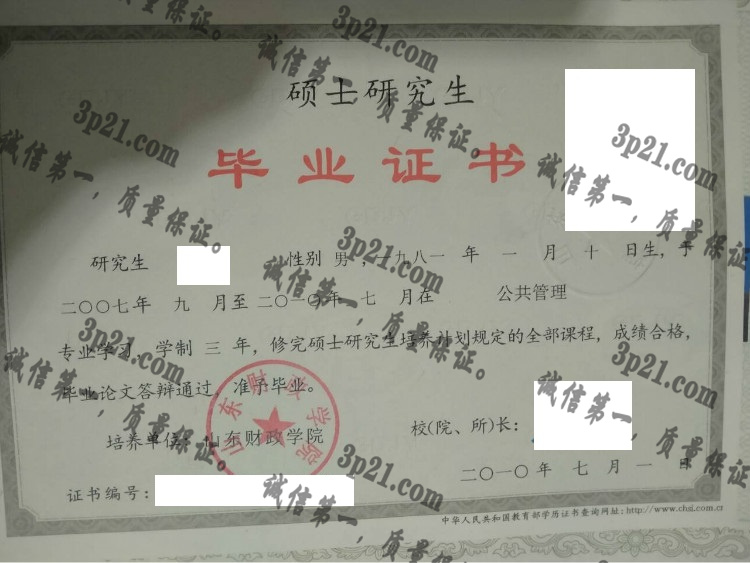 硕士研究生
毕业证书
研究生 性别 男，一九八一 年 一 月 十 日生，于
二〇〇七年 九 月至二〇一〇年 七 月在 公共管理
专业学习 学制 三 年，修完硕士研究生培养计划规定的全部课程，成绩合格，
毕业论文答辩通过，准予毕业。
山东财政学院
培养单位：山东财政学院
校(院、所)长：
二〇一〇 年 七 月 一 日
证书编号：
中华人民共和国教育部学历证书查询网址：http://www.chsi.com.cn
3p21.com
诚信第一，质量保证。
3p21.com
诚信第一，质量保证。
3p21.com
诚信第一，质量保证。
3p21.com
诚信第一，质量保证。
3p21.com
诚信第一，质量保证。
3p21.com
诚信第一，质量保证。
3p21.com
诚信第一，质量保证。
3p21.com
诚信第一，质量保证。